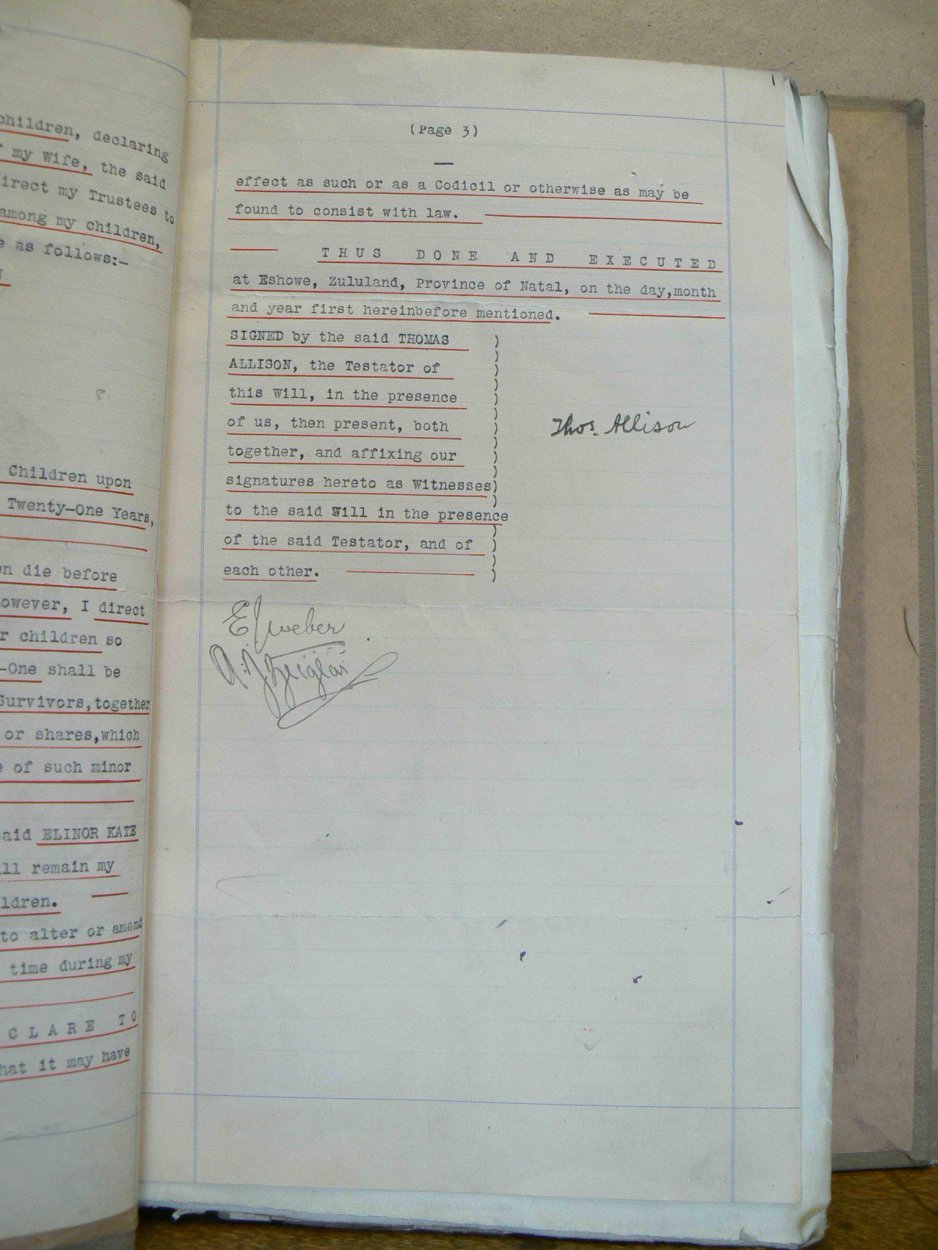 children, declaring
my Wife, the said
direct my Trustees to
among my children,
as follows:-
Children upon
Twenty-One Years,
die before
however, I direct
children so
-One shall be
Survivors, together
or shares,which
of such minor
said ELINOR KATE
remain my
to alter or amend
time during my
C L A R E  T O
that it may have
(Page 3)
effect as such or as a Codicil or otherwise as may be
found to consist with law.
T H U S   D O N E   A N D   E X E C U T E D
at Eshowe, Zululand, Province of Natal, on the day,month
and year first hereinbefore mentioned.
SIGNED by the said THOMAS )
ALLISON, the Testator of )
this Will, in the presence )
of us, then present, both )
Thos. Allison
together, and affixing our )
signatures hereto as Witnesses)
to the said Will in the presence
of the said Testator, and of )
each other. )
E J Weber